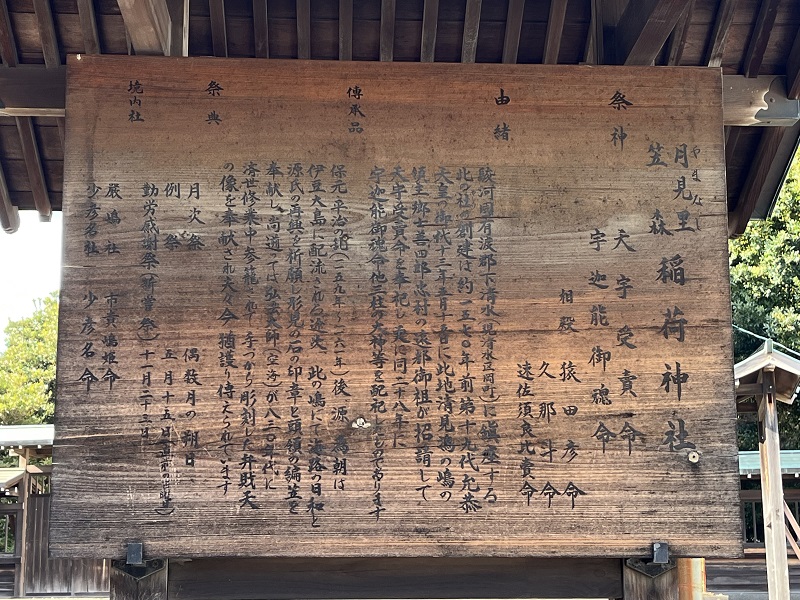 月見里
やまなし
笠森
稲荷神社
祭神
天宇受賣命
宇迦能御魂命
相殿
猿田彦命
久那斗命
速佐須良比賣命
由緒
駿河国有渡郡下清水(現清水区岡町)に鎮座する
此の社の創建は約一五七〇年前第十九代允恭
天皇の御代十二年三月十一日に此地清見潟の嶋の
領主郷士喜四郎忠村の遠郷御祖が招請して
天宇受賣命を奉祀し更に同二十八年に
宇迦能御魂命他三柱の大神等を配祀したものであります
傳承品
保元、平治の乱(一一五九年~一一六〇年)後、源為朝は
伊豆大島に配流される途次、此の嶋にて海路の日和と
源氏の再興を祈願し形見の石の印章と頭領の編笠を
奉献し、尚遡っては弘法大師(空海)が八三〇年代に
済世修業中参籠され手づから彫刻した弁財天
の像を奉献され夫々今猶護り傳えられています
祭典
月次祭 偶数月の朔日
例祭 五月十五日(直前の日曜日)
勤労感謝祭(新嘗祭)十一月二十三日
境内社
厳嶋社 市杵嶋姫命
少彦名社 少彦名命